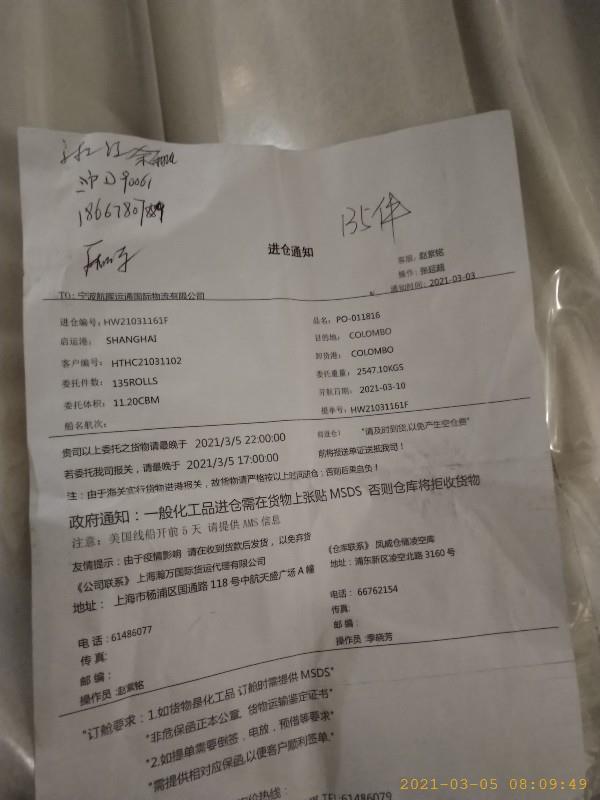 沪D90061
135件
进仓通知
客服：赵紫铭
操作：张廷超
通知时间：2021-03-03
TO：宁波航晖运通国际物流有限公司
进仓编号：HW21031161F
品名：PO-011816
启运港： SHANGHAI
目的地： COLOMBO
客户编号： HTHC21031102
卸货港： COLOMBO
委托件数： 135ROLLS
委托重量： 2547.10KGS
委托体积： 11.20CBM
开航日期： 2021-03-10
船名航次：
提单号：HW21031161F
贵司以上委托之货物请最晚于 2021/3/5 22:00:00
前进仓） "请及时到货,以免产生空仓费"
若委托我司报关，请最晚于 2021/3/5 17:00:00
前将报送单证送抵我司！
注：由于海关实行货物进港报关，故货物请严格按以上时间进仓；否则后果自负！
政府通知：一般化工品进仓需在货物上张贴 MSDS 否则仓库将拒收货物
注意：美国线船开前 5 天 请提供 AMS 信息
友情提示：由于疫情影响 请在收到货款后发货，以免弃货
《公司联系》 上海瀚万国际货运代理有限公司
《仓库联系》 凤威仓储凌空库
地址： 上海市杨浦区国通路 118 号中航天盛广场 A 幢
地址：浦东新区凌空北路 3160 号
电 话：61486077
电话： 66762154
传 真：
传真：
邮 编：
邮 编：
操作员：赵紫铭
操作员：季晓芳
"订舱要求：1.如货物是化工品 订舱时需提供 MSDS"
"非危保函正本公章，货物运输鉴定证书"
"2.如提单需要倒签，电放，预借等要求"
"需提供相对应保函,以便客户顺利签单。"
热线：
TEL:61486079
2021-03-05 08:09:49